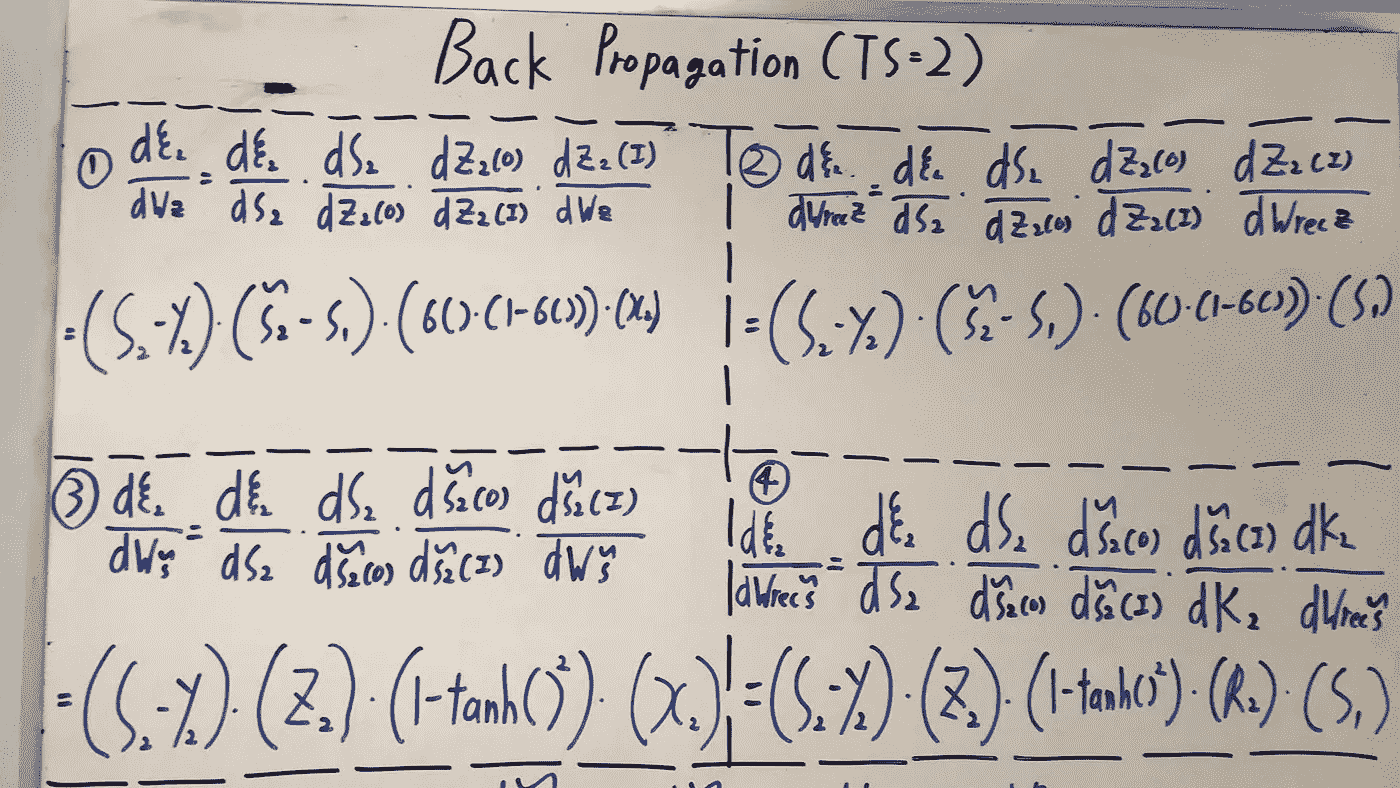 Back Propagation (TS=2)
① dξ₂/dWz = dξ₂/dS₂ · dS₂/dZ₂(O) · dZ₂(O)/dZ₂(I) · dZ₂(I)/dWz
=(S₂-Y₂)·(S̃₂-S₁)·(б()·(1-б()))·(X₂)
② dξ₂/dWrecz = dξ₂/dS₂ · dS₂/dZ₂(O) · dZ₂(O)/dZ₂(I) · dZ₂(I)/dWrecz
=(S₂-Y₂)·(S̃₂-S₁)·(б()·(1-б()))·(S₁)
③ dξ₂/dWs̃ = dξ₂/dS₂ · dS₂/dS̃₂(O) · dS̃₂(O)/dS̃₂(I) · dS̃₂(I)/dWs̃
=(S₂-Y₂)·(Z₂)·(1-tanh()²)·(X₂)
④
dξ₂/dWrecs̃ = dξ₂/dS₂ · dS₂/dS̃₂(O) · dS̃₂(O)/dS̃₂(I) · dS̃₂(I)/dK₂ · dK₂/dWrecs̃
=(S₂-Y₂)·(Z₂)·(1-tanh()²)·(R₂)·(S₁)